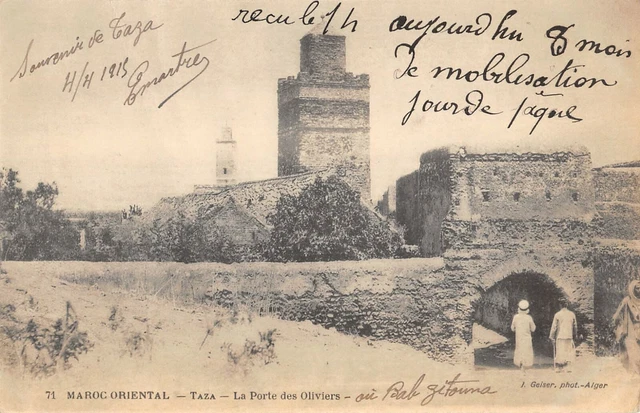 Souvenir de Taza
4/4 1915
Emartres
recu le 14
aujourdhu 8 mois
De mobilisation
jour de pâque
71 MAROC ORIENTAL — TAZA — La Porte des Oliviers - où Bab zitouna
J. Geiser, phot.-Alger